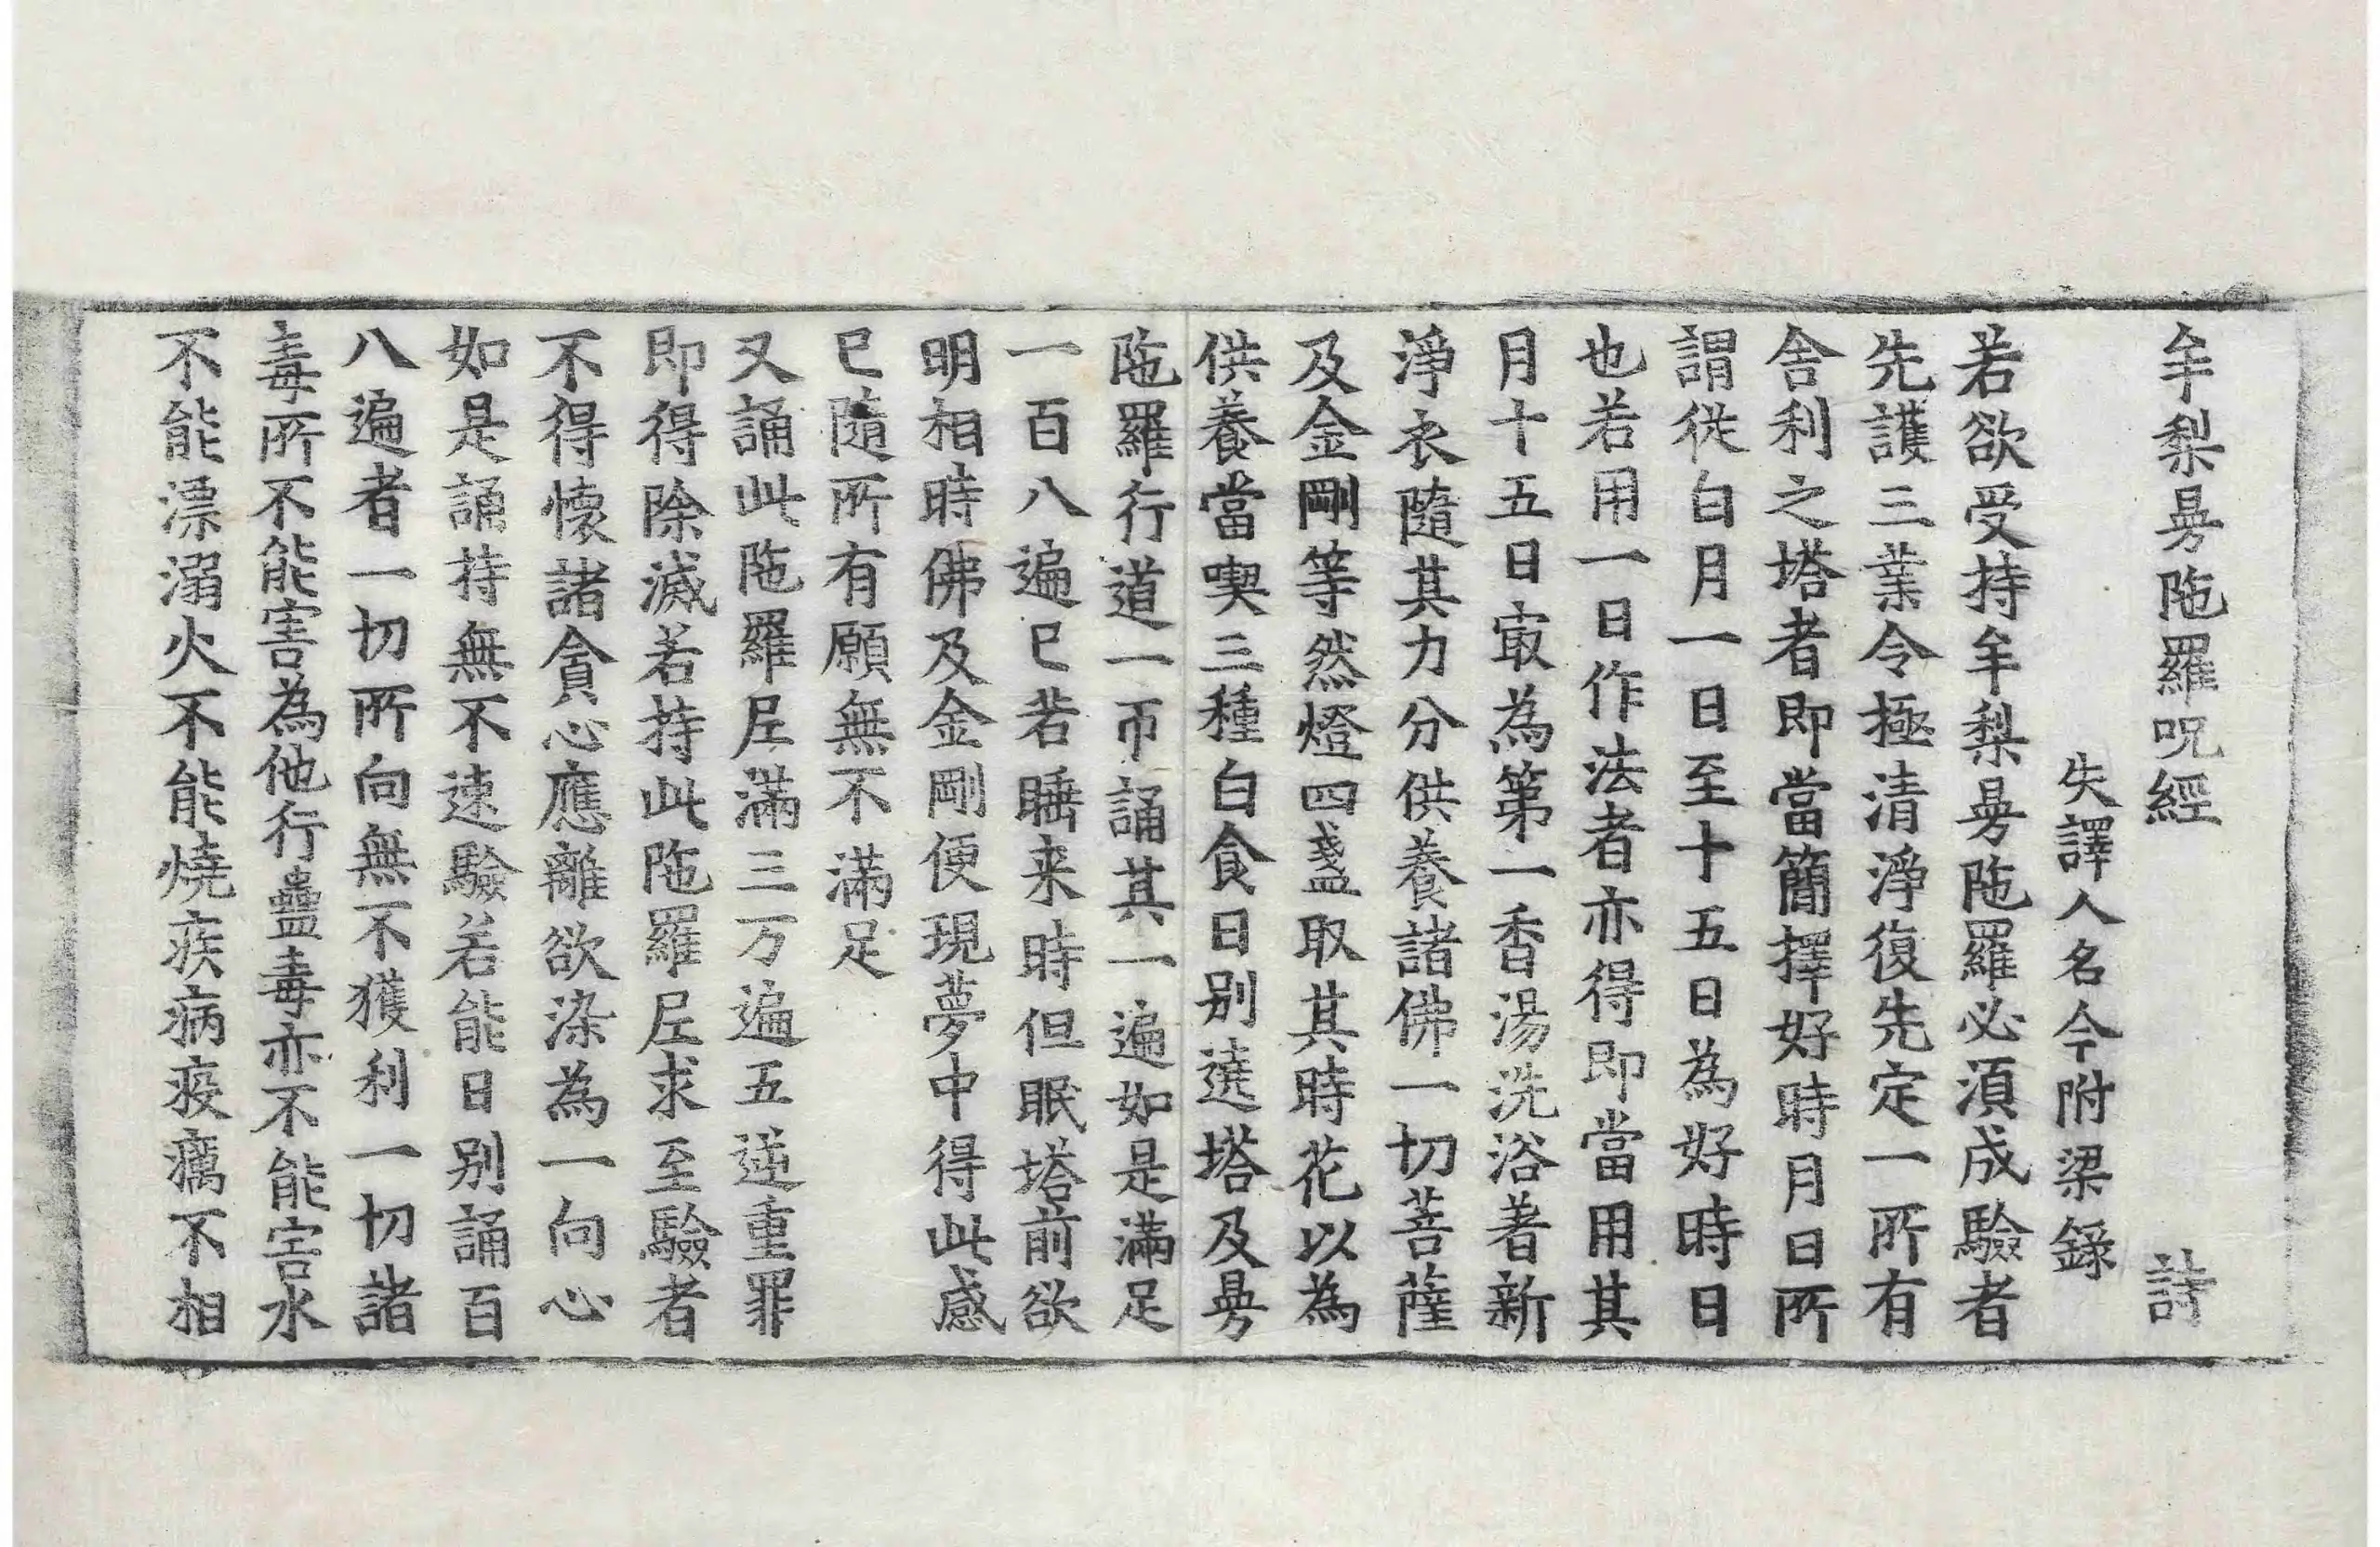 牟梨曼陁羅呪經 詩
失譯人名今附梁錄
若欲受持牟梨曼陁羅必湏成驗者
先護三業令極清淨復先定一所有
舎利之塔者即當簡擇好時月日所
謂從白月一日至十五日為好時日
也若用一日作法者亦得即當用其
月十五日㝡為第一香湯洗浴著新
淨衣隨其力分供養諸佛一切菩薩
及金剛等然燈四盞取其時花以為
供養當喫三種白食日别遶塔及曼
陁羅行道一帀誦其一遍如是滿足
一百八遍已若睡来時但眠塔前欲
明相時佛及金剛便現夢中得此感
已隨所有願無不滿足
又誦此陁羅𡰱滿三万遍五逆重罪
即得除滅若持此陁羅𡰱求至驗者
不得懷諸貪心應離欲染為一向心
如是誦持無不速驗若能日别誦百
八遍者一切所向無不獲利一切諸
毒所不能害為他行蠱毒亦不能害水
不能漂溺火不能燒疾病疫癘不相